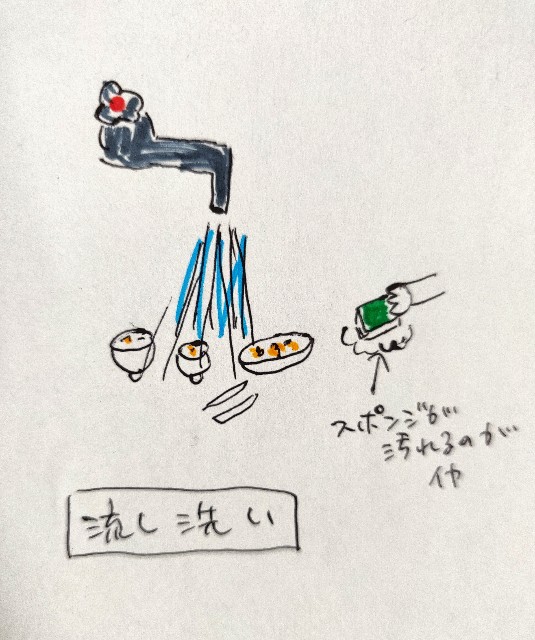 スポンジが
汚れるのが
イヤ
流し洗い